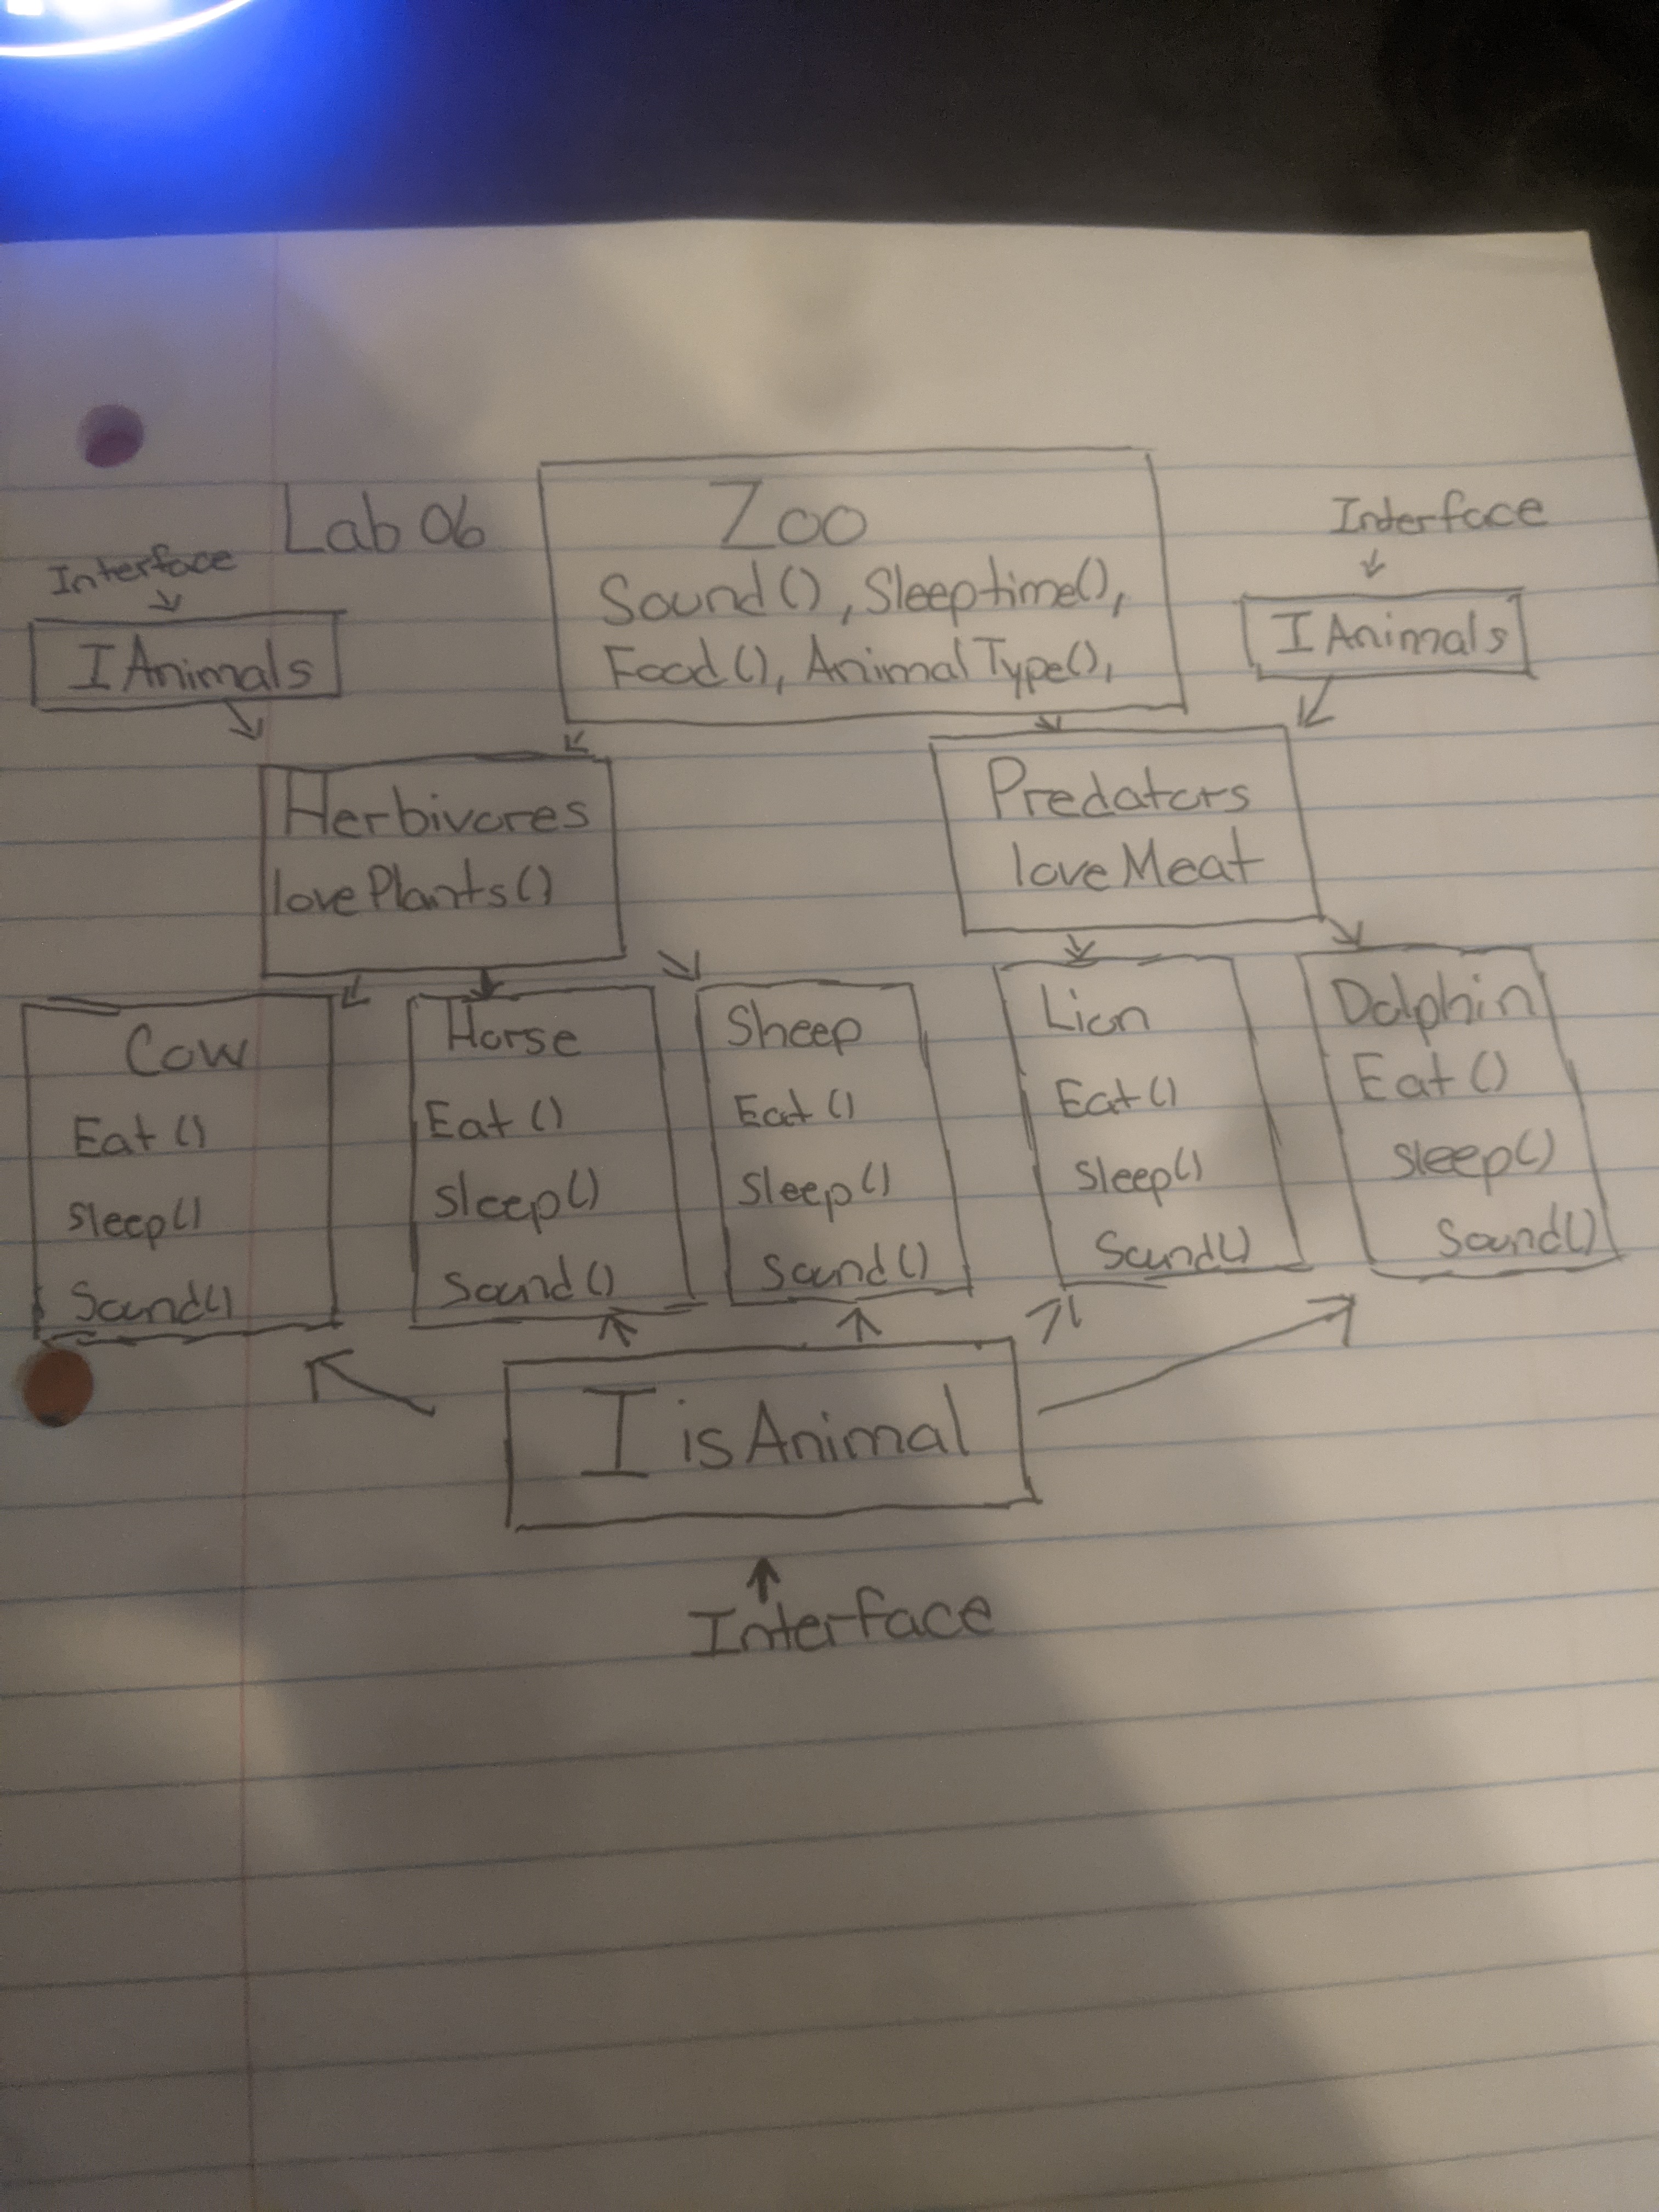 Lab 06
Interface
I Animals
Zoo
Sound(), Sleeptime(),
Food(), AnimalType(),
Interface
I Animals
Herbivores
lovePlants()
Predators
loveMeat
Cow
Eat()
sleep()
Sound()
Horse
Eat()
sleep()
Sound()
Sheep
Eat()
sleep()
Sound()
Lion
Eat()
sleep()
Sound()
Dolphin
Eat()
sleep()
Sound()
I isAnimal
Interface